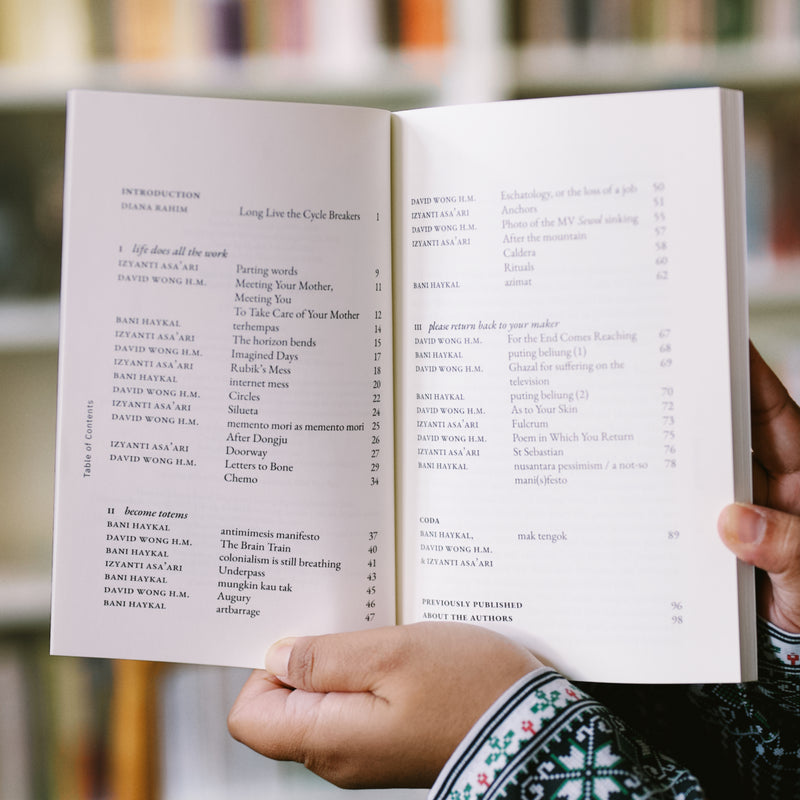 Table of Contents
INTRODUCTION
DIANA RAHIM Long Live the Cycle Breakers 1
I life does all the work
IZYANTI ASA'ARI Parting words 9
DAVID WONG H.M. Meeting Your Mother, 11
Meeting You
To Take Care of Your Mother 12
BANI HAYKAL terhempas 14
IZYANTI ASA'ARI The horizon bends 15
DAVID WONG H.M. Imagined Days 17
IZYANTI ASA'ARI Rubik's Mess 18
BANI HAYKAL internet mess 20
DAVID WONG H.M. Circles 22
IZYANTI ASA'ARI Silueta 24
DAVID WONG H.M. memento mori as memento mori 25
After Dongju 26
IZYANTI ASA'ARI Doorway 27
DAVID WONG H.M. Letters to Bone 29
Chemo 34
II become totems
BANI HAYKAL antimimesis manifesto 37
DAVID WONG H.M. The Brain Train 40
BANI HAYKAL colonialism is still breathing 41
IZYANTI ASA'ARI Underpass 43
BANI HAYKAL mungkin kau tak 45
DAVID WONG H.M. Augury 46
BANI HAYKAL artbarrage 47
DAVID WONG H.M. Eschatology, or the loss of a job 50
IZYANTI ASA'ARI Anchors 51
DAVID WONG H.M. Photo of the MV Sewol sinking 55
IZYANTI ASA'ARI After the mountain 57
Caldera 58
Rituals 60
BANI HAYKAL azimat 62
III please return back to your maker
DAVID WONG H.M. For the End Comes Reaching 67
BANI HAYKAL puting beliung (1) 68
DAVID WONG H.M. Ghazal for suffering on the 69
television
BANI HAYKAL puting beliung (2) 70
DAVID WONG H.M. As to Your Skin 72
IZYANTI ASA'ARI Fulcrum 73
DAVID WONG H.M. Poem in Which You Return 75
IZYANTI ASA'ARI St Sebastian 76
BANI HAYKAL nusantara pessimism / a not-so 78
mani(s)festo
CODA
BANI HAYKAL, mak tengok 89
DAVID WONG H.M.
& IZYANTI ASA'ARI
PREVIOUSLY PUBLISHED 96
ABOUT THE AUTHORS 98